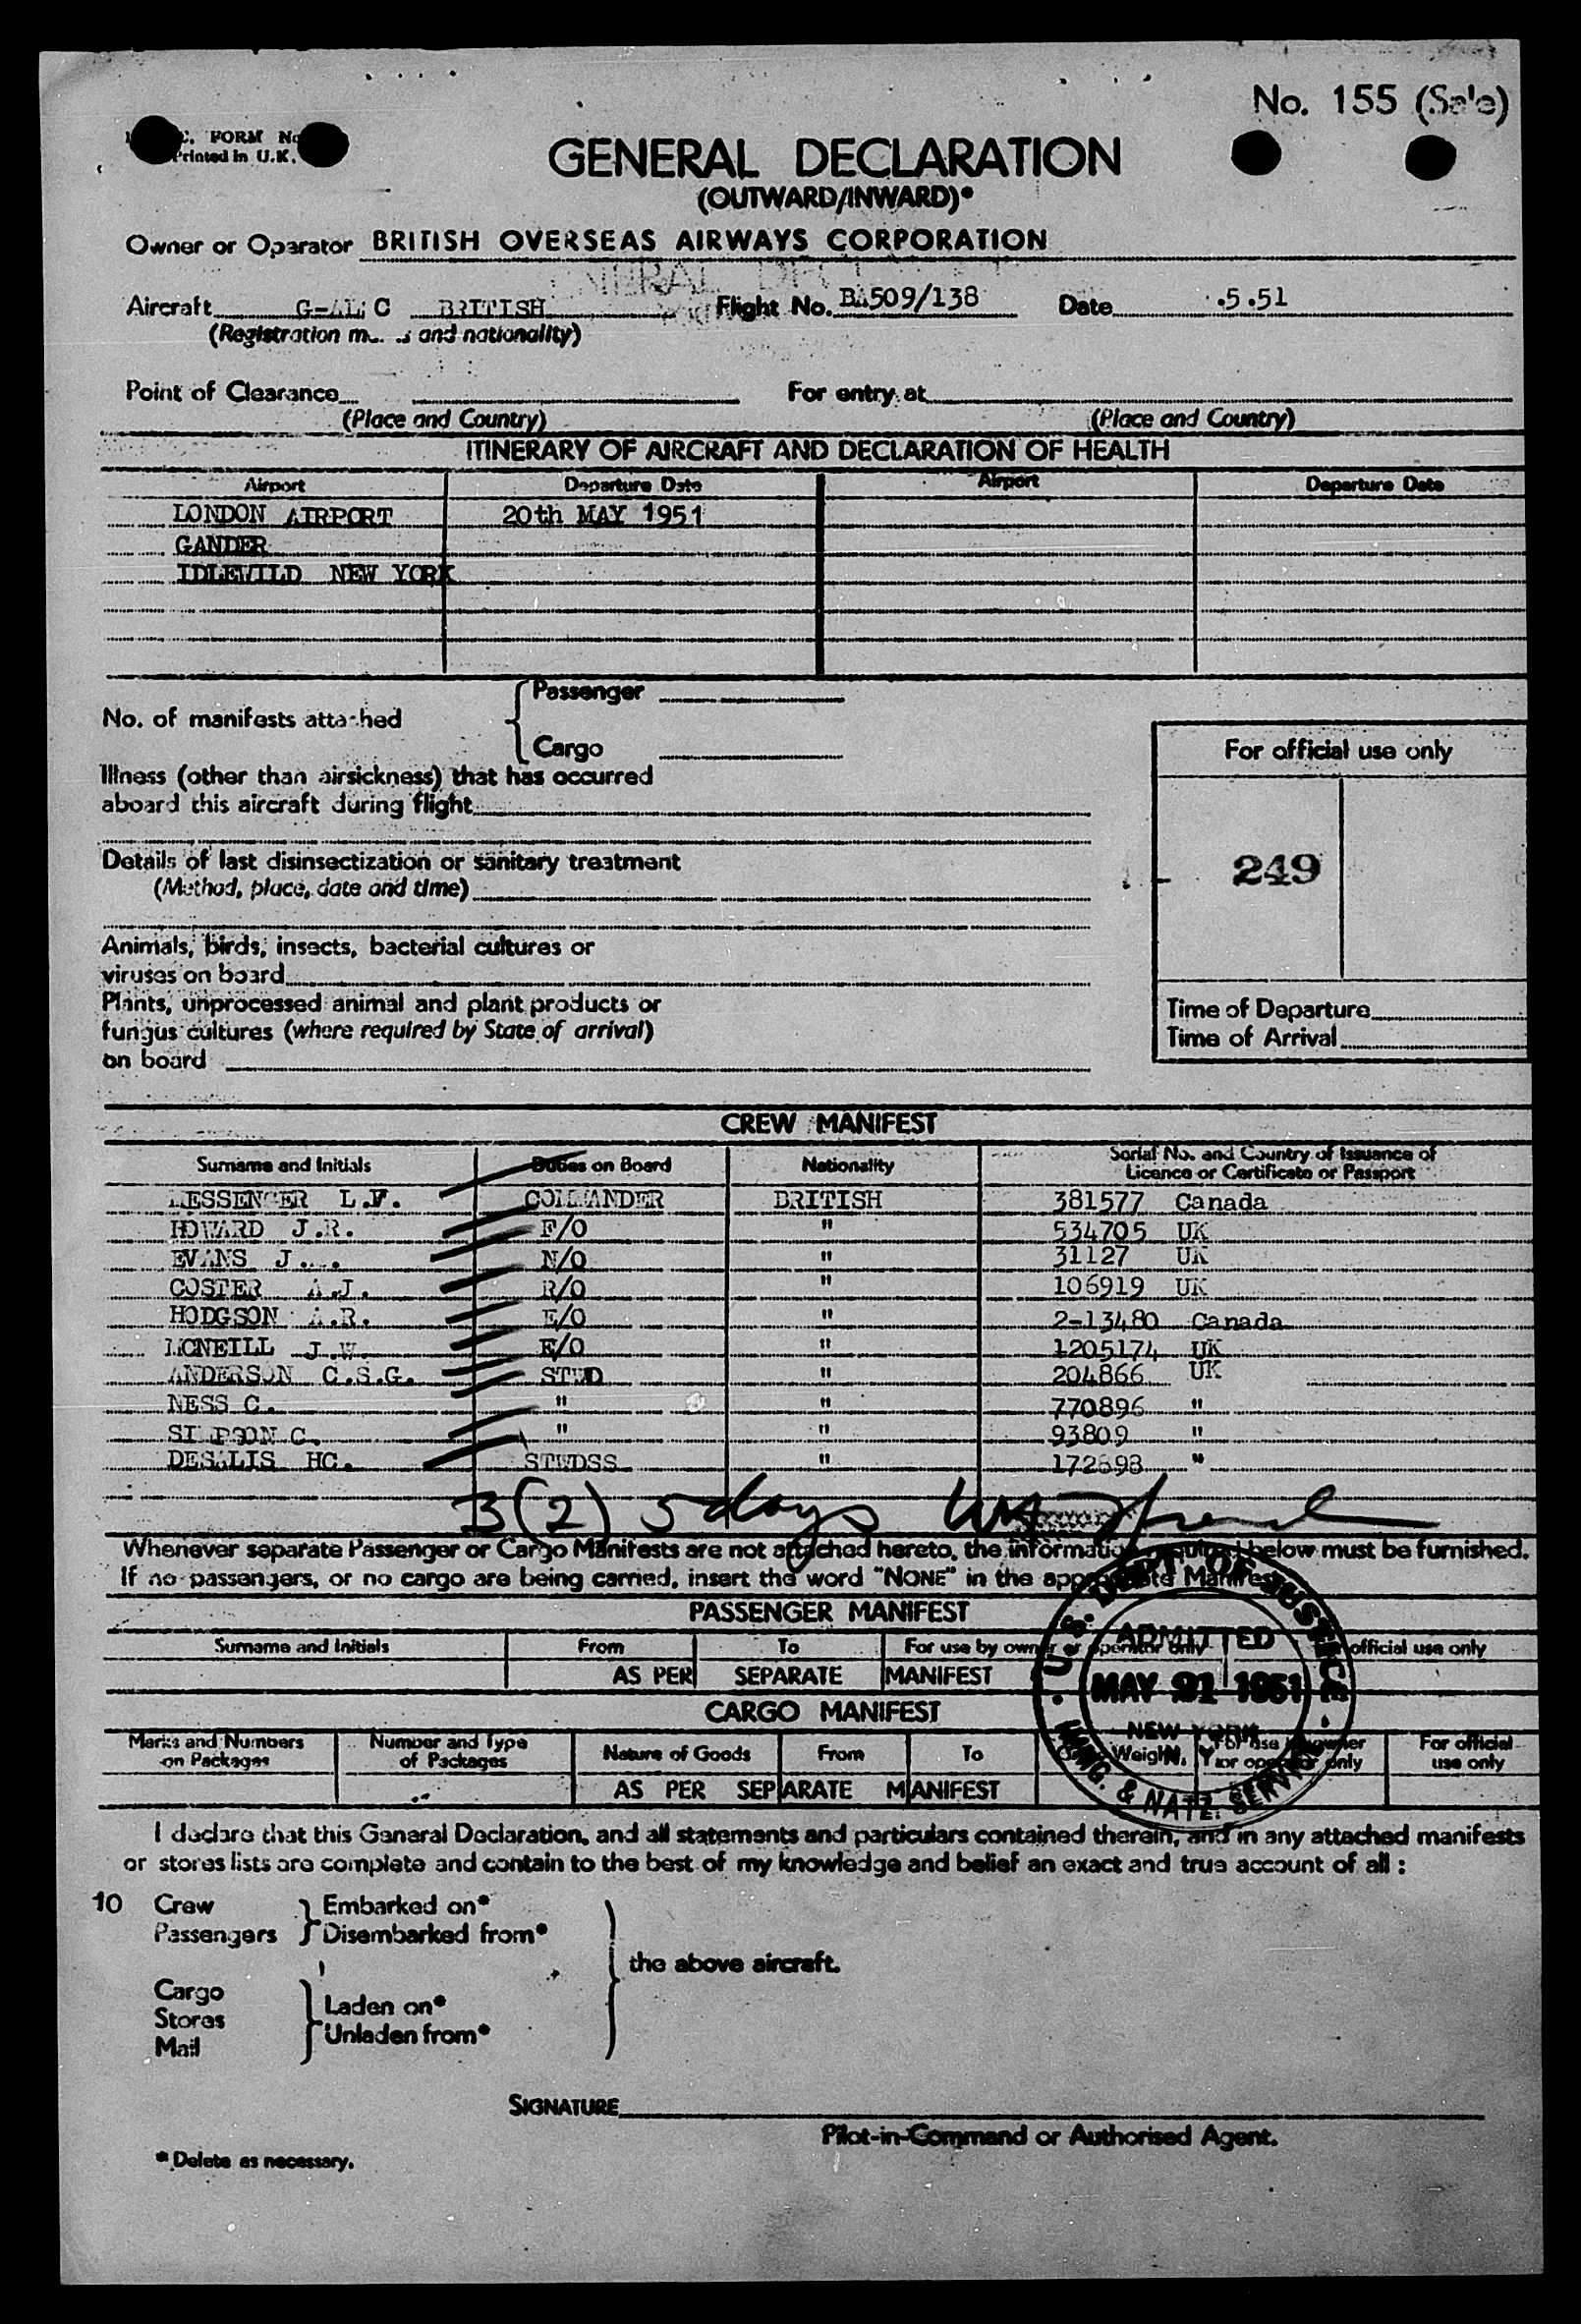 No. 155 (Sale)
FORM No
Printed in U.K.
GENERAL DECLARATION
(OUTWARD/INWARD)*
Owner or Operator BRITISH OVERSEAS AIRWAYS CORPORATION
Aircraft BRITISH Flight No. BA509/138 Date .5.51
(Registration and nationality)
Point of Clearance For entry at
(Place and Country) (Place and Country)
ITINERARY OF AIRCRAFT AND DECLARATION OF HEALTH
Airport Departure Date Airport Departure Date
LONDON AIRPORT 20th MAY 1951
GANDER
IDLEWILD NEW YORK
No. of manifests attached
Passenger
Cargo
For official use only
Illness (other than airsickness) that has occurred
aboard this aircraft during flight
Details of last disinsectization or sanitary treatment
(Method, place, date and time)
249
Animals, birds, insects, bacterial cultures or
viruses on board
Plants, unprocessed animal and plant products or
fungus cultures (where required by State of arrival)
on board
Time of Departure
Time of Arrival
CREW MANIFEST
Surname and Initials Duties on Board Nationality Serial No. and Country of Issuance of
Licence or Certificate or Passport
MESSENGER L.F. COMMANDER BRITISH 381577 Canada
HOWARD J.R. F/O " 534705 UK
EVANS J. N/O " 31127 UK
COSTER A.J. R/O " 106919 UK
HODGSON A.R. E/O " 2-13480 Canada
MCNEILL J.W. E/O " 1205174 UK
ANDERSON C.S.G. STWD " 204866 UK
NESS C. " " 770896 "
SIMPSON C. " " 93809 "
DESALIS HC. STWDSS " 172898 "
3(2) 5 days
Whenever separate Passenger or Cargo Manifests are not attached hereto, the information required below must be furnished.
If no passengers, or no cargo are being carried, insert the word "NONE" in the appropriate Manifest.
PASSENGER MANIFEST
Surname and Initials From To For use by owner or operator only official use only
AS PER SEPARATE MANIFEST
U.S. DEPT. OF JUSTICE
ADMITTED
MAY 21 1951
NEW YORK
N. Y.
IMMIG. & NATZ. SERVICE
CARGO MANIFEST
Marks and Numbers on Packages Number and Type of Packages Nature of Goods From To Weight For use by owner or operator only For official use only
AS PER SEPARATE MANIFEST
I declare that this General Declaration, and all statements and particulars contained therein, and in any attached manifests
or stores lists are complete and contain to the best of my knowledge and belief an exact and true account of all :
10 Crew Embarked on*
Passengers Disembarked from*
the above aircraft.
Cargo
Stores
Mail
Laden on*
Unladen from*
SIGNATURE
Pilot-in-Command or Authorised Agent.
* Delete as necessary.